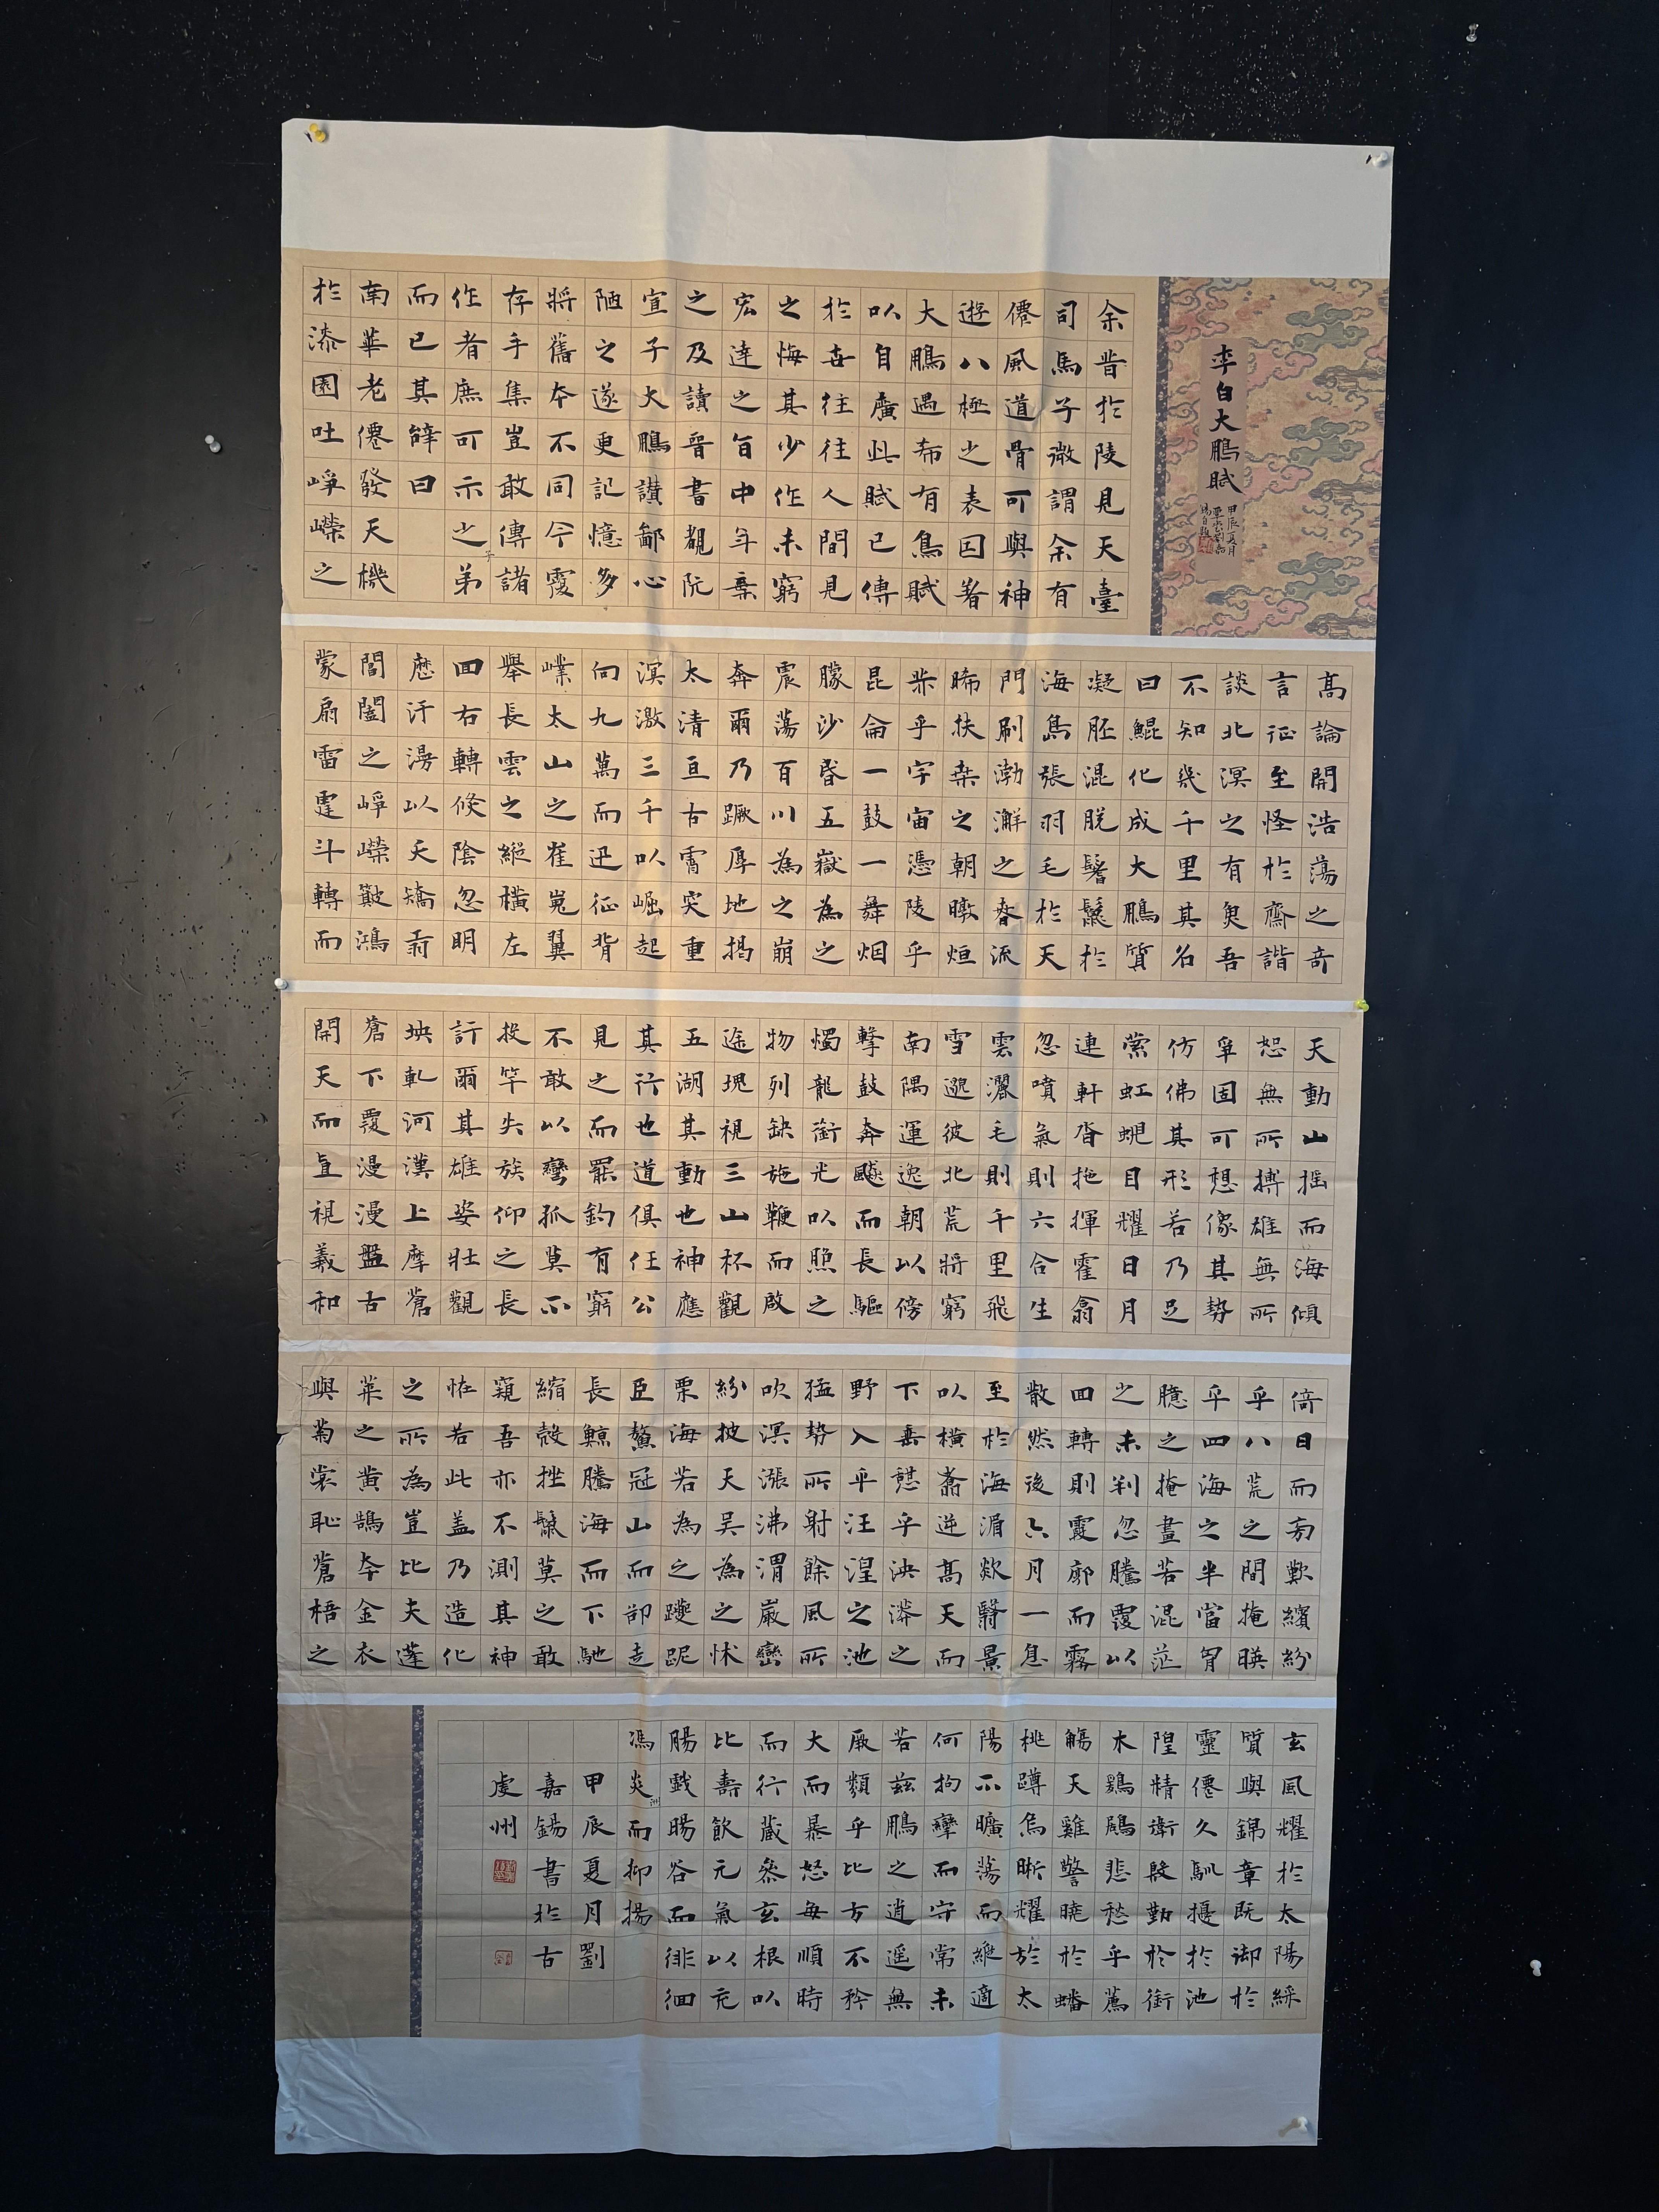 李白大鵬賦
甲辰夏月
余昔於陵見天臺
司馬子微謂余有
僊風道骨可與神
遊八極之表因著
大鵬遇希有鳥賦
以自廣此賦已傳
於世往往人間見
之悔其少作未窮
宏達之旨中年棄
之及讀晉書覩阮
宣子大鵬讚鄙心
陋之遂更記憶多
將舊本不同今復
存手集豈敢傳諸
作者庶可示之子弟
而已其辭曰
南華老僊發天機
於漆園吐崢嶸之
高論開浩蕩之奇
言征至怪於齊諧
談北溟之有魚吾
不知幾千里其名
曰鯤化成大鵬質
凝胚混脫鬐鬣於
海島張羽毛於天
門刷渤澥之春流
晞扶桑之朝暾烜
赫乎宇宙憑陵乎
昆侖一鼓一舞烟
朦沙昏五嶽為之
震蕩百川為之崩
奔爾乃蹶厚地揭
太清亘古霄突重
溟激三千以崛起
向九萬而迅征背
嶪太山之崔嵬翼
舉長雲之縱橫左
回右轉倏陰忽明
歷汗漫以夭矯羾
閶闔之崢嶸簸鴻
蒙扇雷霆斗轉而
天動山搖而海傾
怒無所搏雄無所
爭固可想像其勢
仿佛其形若乃足
縈虹蜺目耀日月
連軒沓拖揮霍翕
忽噴氣則六合生
雲灑毛則千里飛
雪邈彼北荒將窮
南隅運逸朝以傍
擊鼓奔飈而長驅
燭龍銜光以照之
物列缺施鞭而啟
途塊視三山杯觀
五湖其動也神應
其行也道俱任公
見之而罷釣有窮
不敢以彎弧莫不
投竿失族仰之長
訏爾其雄姿壯觀
坱軋河漢上摩蒼
蒼下覆漫漫盤古
開天而直視羲和
倚日而旁歎繽紛
乎八荒之間掩映
乎四海之半當胷
臆之掩晝若混茫
之未判忽騰覆以
回轉則霞廓而霧
散然後六月一息
至於海湄欻翳景
以橫翥逆高天而
下垂憩乎泱漭之
野入乎汪湟之池
猛勢所射餘風所
吹溟漲沸渭巖巒
紛披天吳為之怵
栗海若為之躨跜
巨鰲冠山而卻走
長鯨騰海而下馳
縮殼挫鬣莫之敢
窺吾亦不測其神
恠若此蓋乃造化
之所為豈比夫蓬
萊之黃鵠夸金衣
與菊裳恥蒼梧之
玄鳳耀於太陽綵
質與錦章既御於
靈僊久馴擾於池
隍精衛殷勤於銜
木鷄鶋悲愁乎薦
觴天雞警曉於蟠
桃蹲烏晰耀於太
陽不曠蕩而縱適
何拘攣而守常未
若茲鵬之逍遙無
厥類乎比方不矜
大而暴怒每順時
而行藏參玄根以
比壽飲元氣以充
腸戲暘谷而徘徊
馮炎洲而抑揚
甲辰夏月劉
嘉錫書於古
虔州